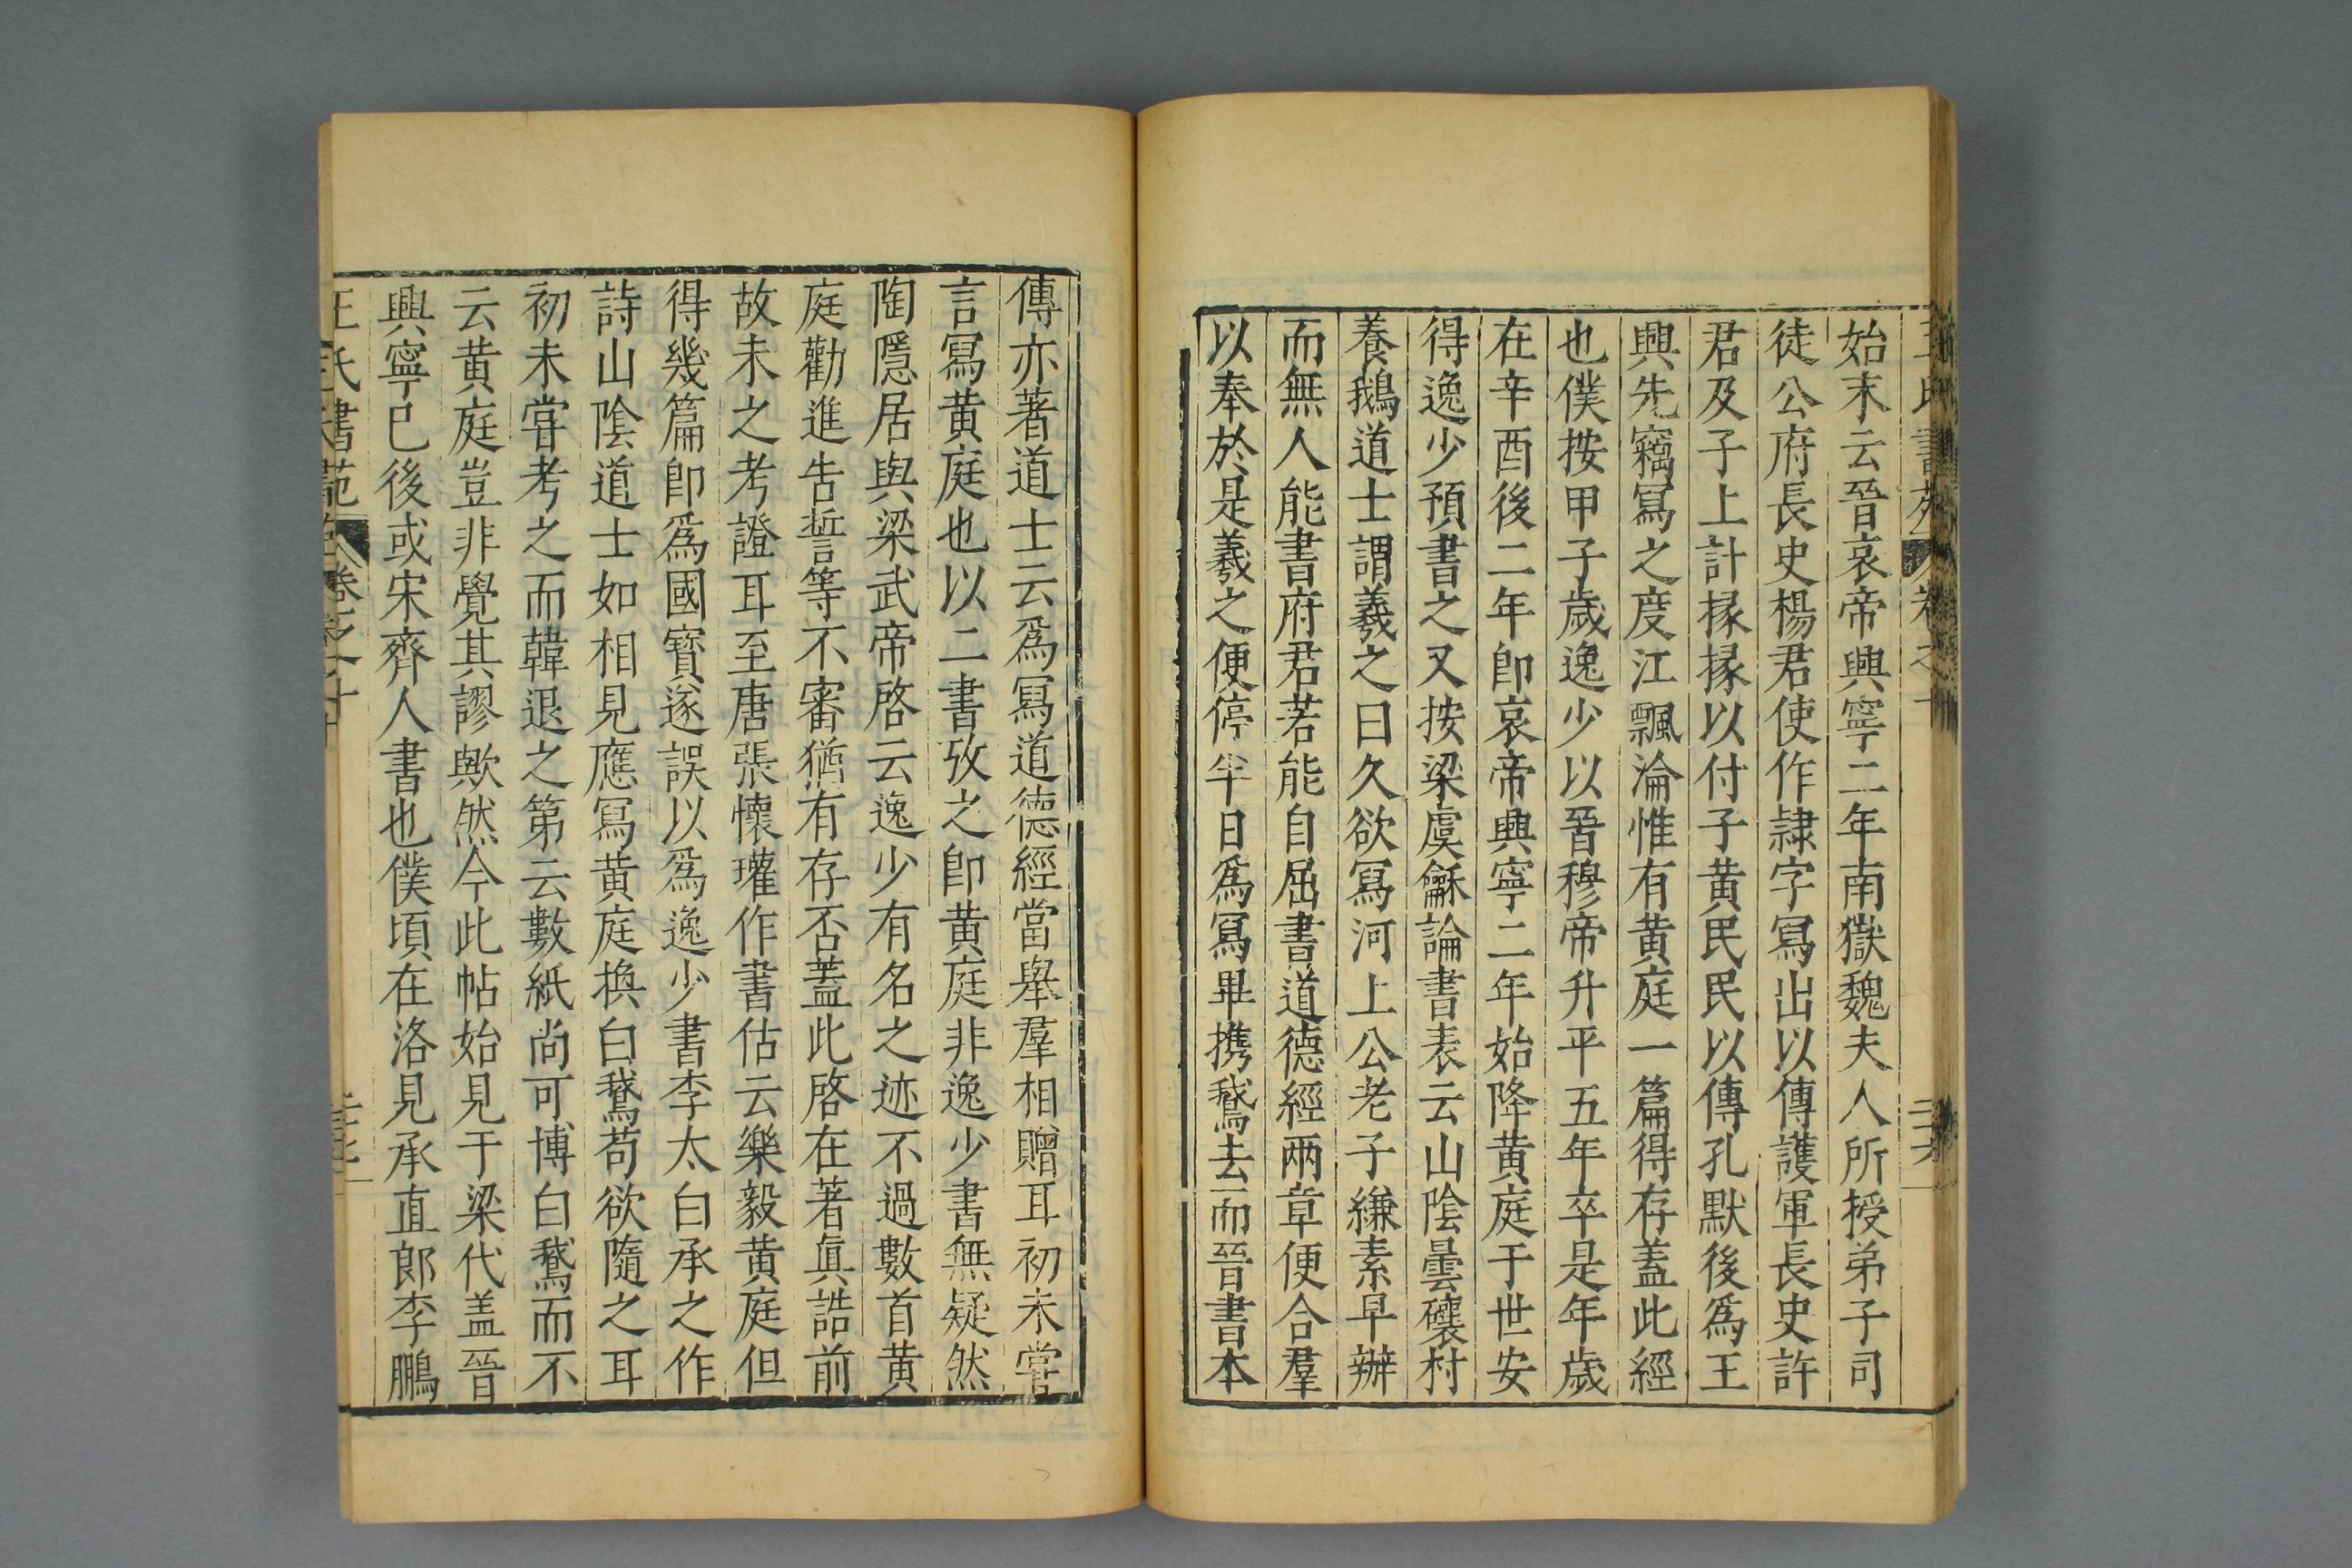 始末云晉哀帝興寧二年南嶽魏夫人所授弟子司
徒公府長史楊君使作隷字冩出以傳護軍長史許
君及子上計掾掾以付子黄民民以傳孔默後爲王
興先竊冩之度江飄淪惟有黄庭一篇得存蓋此經
也僕按甲子歲逸少以晉穆帝升平五年卒是年歲
在辛酉後二年卽哀帝興寧二年始降黄庭于世安
得逸少預書之又按梁虞龢論書表云山陰曇𥗝村
養鵝道士謂羲之曰久欲冩河上公老子縑素早辦
而無人能書府君若能自屈書道德經兩章便合羣
以奉於是羲之便停半日爲冩畢携鵞去而晉書本
傳亦著道士云爲冩道德經當舉羣相贈耳初未嘗
言冩黄庭也以二書攷之卽黄庭非逸少書無疑然
陶隱居與梁武帝啓云逸少有名之迹不過數首黄
庭勸進告誓等不審猶有存否蓋此啓在著眞誥前
故未之考證耳至唐張懷瓘作書估云樂毅黄庭但
得幾篇卽爲國寶遂誤以爲逸少書李太白承之作
詩山陰道士如相見應冩黄庭換白鵞苟欲隨之耳
初未甞考之而韓退之第云數紙尚可博白鵞而不
云黄庭豈非覺其謬歟然今此帖始見于梁代盖晉
興寧已後或宋齊人書也僕頃在洛見承直郞李鵬
王氏書苑 卷之十